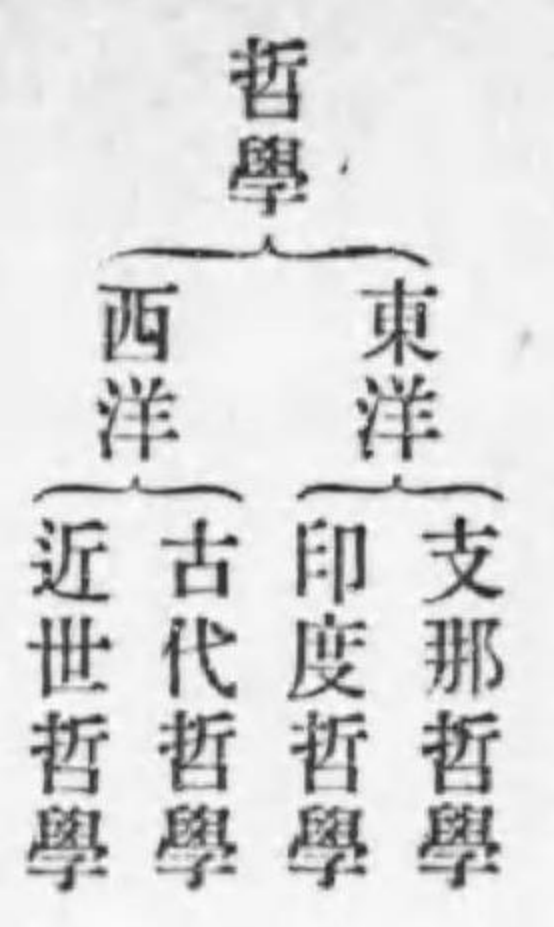 哲學
東洋
西洋
支那哲學
印度哲學
古代哲學
近世哲學